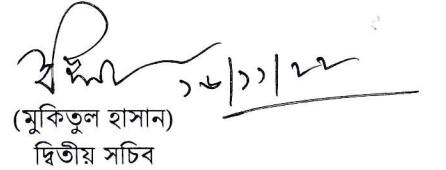 ১৬/১১/২২
(মুকিতুল হাসান)
দ্বিতীয় সচিব